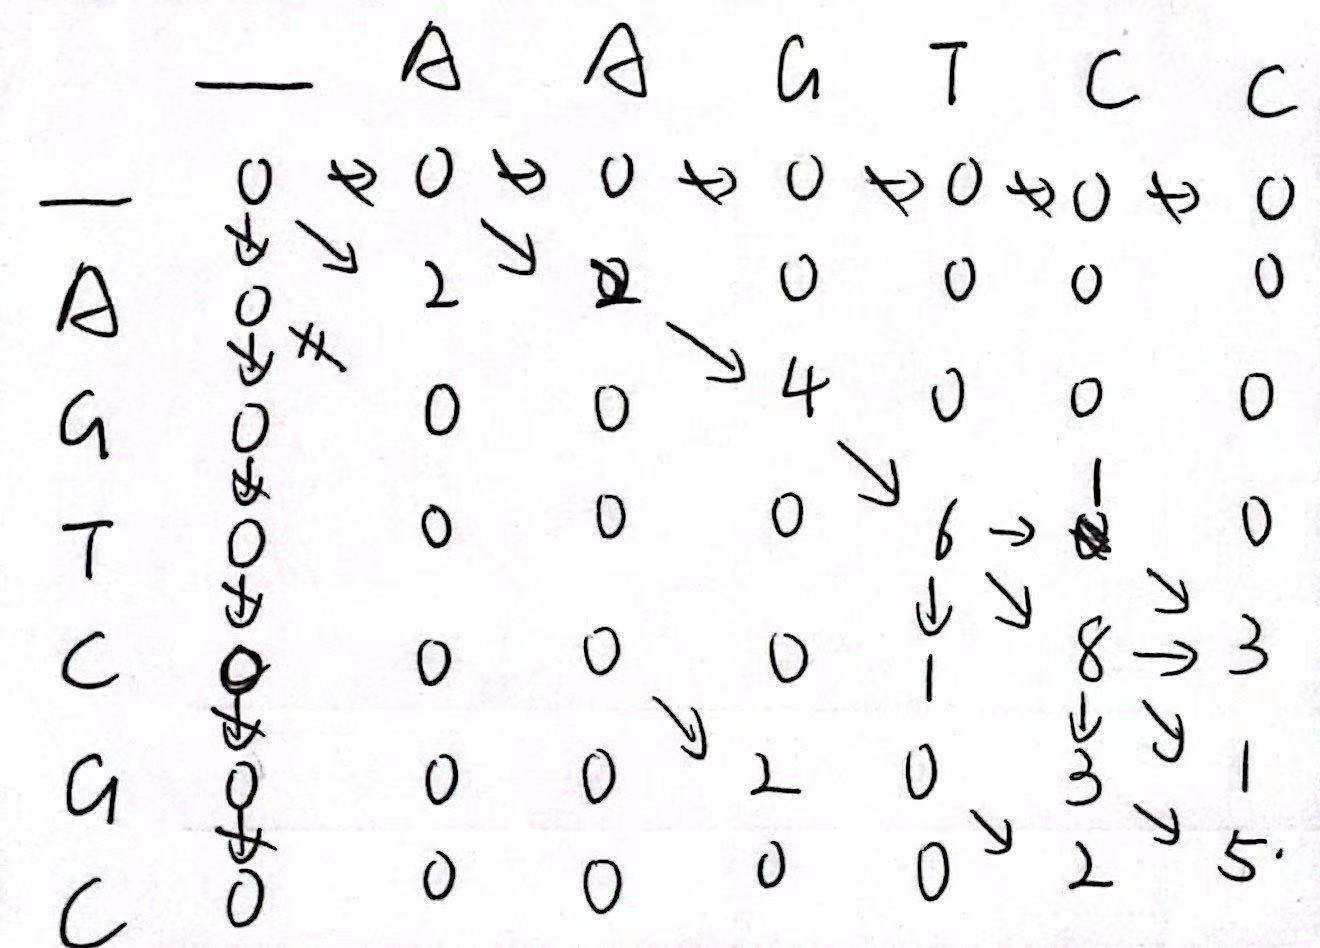 — A A G T C C
— 0 → 0 → 0 → 0 → 0 → 0 → 0
↓ ↘ ↘
A 0 2 2 0 0 0 0
↓ ↘ ↘
G 0 0 0 4 0 0 0
↓ ↘ 1
T 0 0 0 0 6 → 0
↓ ↓ ↘ ↘
C 0 0 0 0 1 8 → 3
↓ ↘ ↓ ↘
G 0 0 0 2 0 3 1
↓ ↘ ↘
C 0 0 0 0 0 2 5.